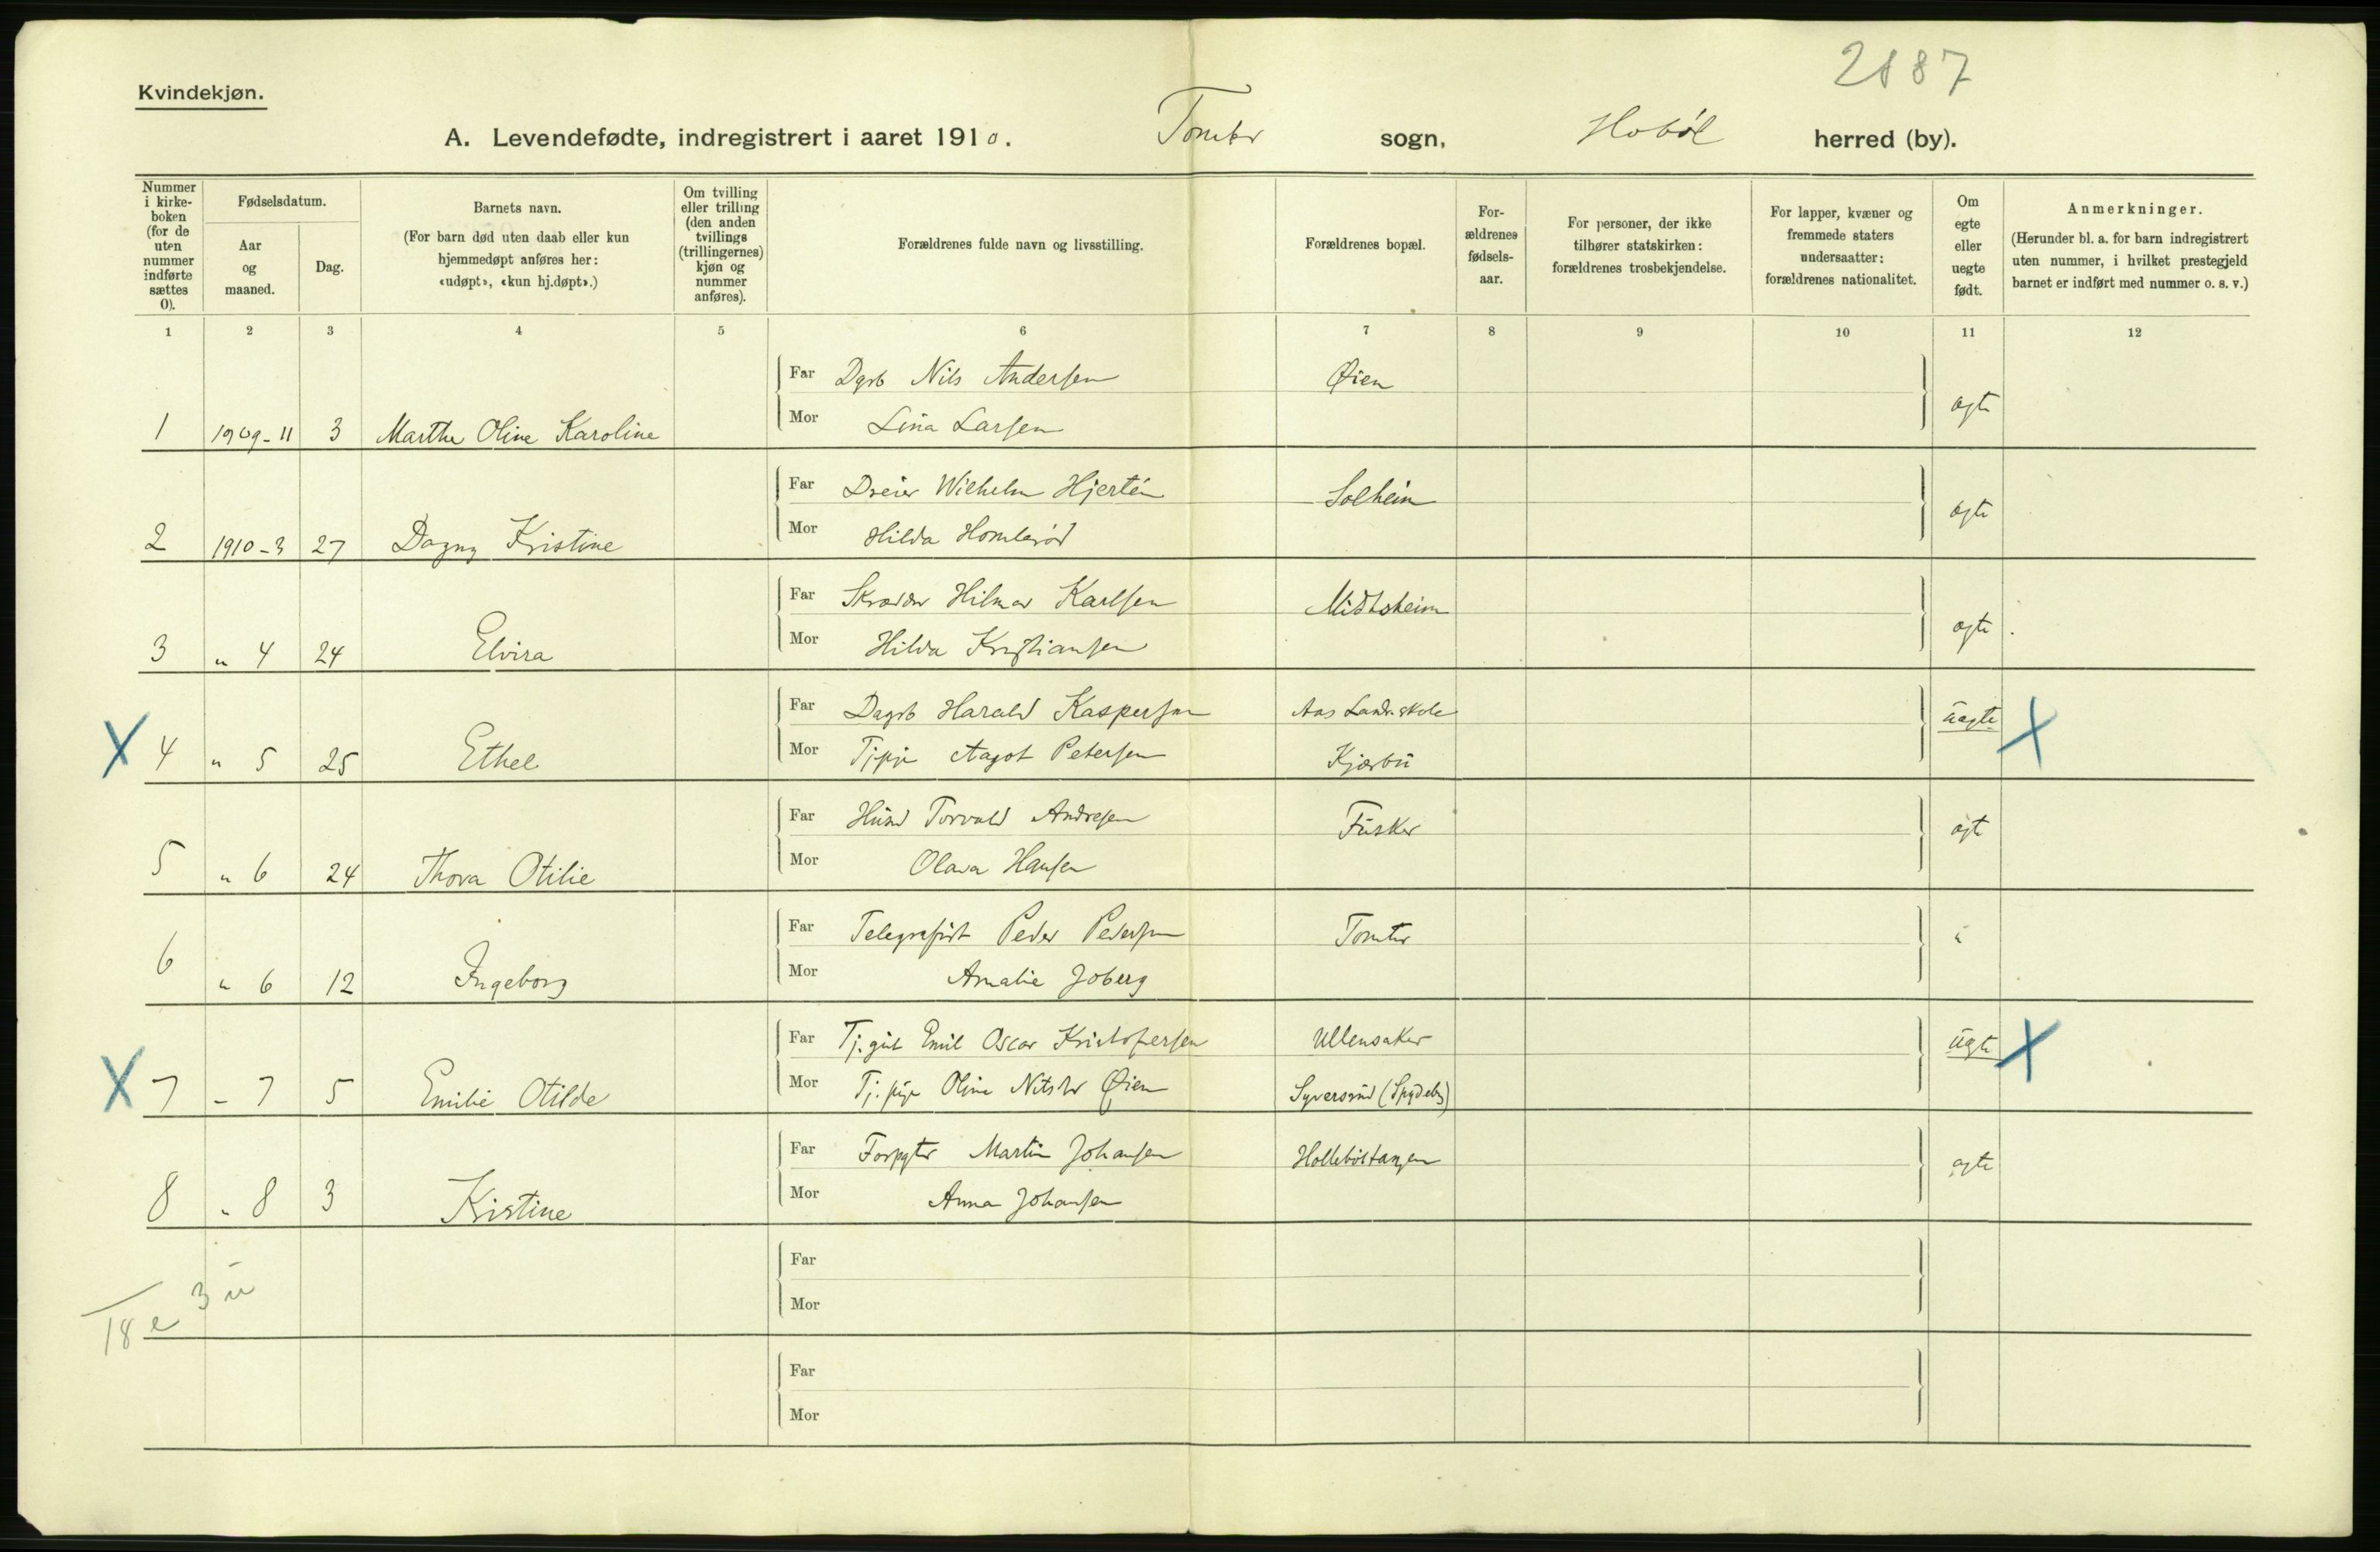 2887
Kvindekjøn.
A. Levendefødte, indregistrert i aaret 1910. Tomter sogn, Hobøl herred (by).
Nummer i kirke-boken (for de uten nummer indførte sættes 0).
Fødselsdatum.
Aar og maaned.
Dag.
Barnets navn.
(For barn død uten daab eller kun hjemmedøpt anføres her: «udøpt», «kun hj.døpt».)
Om tvilling eller trilling (den anden tvillings (trillingernes) kjøn og nummer anføres).
Forældrenes fulde navn og livsstilling.
Forældrenes bopæl.
For-ældrenes fødsels-aar.
For personer, der ikke tilhører statskirken: forældrenes trosbekjendelse.
For lapper, kvæner og fremmede staters undersaatter: forældrenes nationalitet.
Om egte eller uegte født.
Anmerkninger.
(Herunder bl. a. for barn indregistrert uten nummer, i hvilket prestegjeld barnet er indført med nummer o. s. v.)
1 2 3 4 5 6 7 8 9 10 11 12
Far Dgrb Nils Andersen Øien
1 1909-11 3 Marthe Oline Karoline Mor Lina Larsen ægte
Far Dreier Wilhelm Hjertén Solheim
2 1910-3 27 Dagny Kristine Mor Hilda Homlerød ægte
Far Skræder Hilmar Karlsen Midtsheim
3 " 4 24 Elvira Mor Hilda Kristiansen ægte
Far Dagrb Harald Kaspersen Aas Landr.skole uægte X
X 4 " 5 25 Ethel Mor Tjpige Aagot Petersen Kjærbu
Far Husm Torvald Andresen Fusker
5 " 6 24 Thora Otilie Mor Olava Hansen ægte
Far Telegrafist Peder Pedersen Tomter
6 " 6 12 Ingeborg Mor Amalie Joberg "
Far Tj.gut Emil Oscar Kristofersen Ullensaker uægte X
X 7 - 7 5 Emilie Otilde Mor Tj.pige Oline Øien Syversrud (Spydeb)
Far Forpgter Martin Johansen Holleböltangen
8 " 8 3 Kristine Mor Anna Johansen ægte
Far
18 e 3 u Mor
Far
Mor